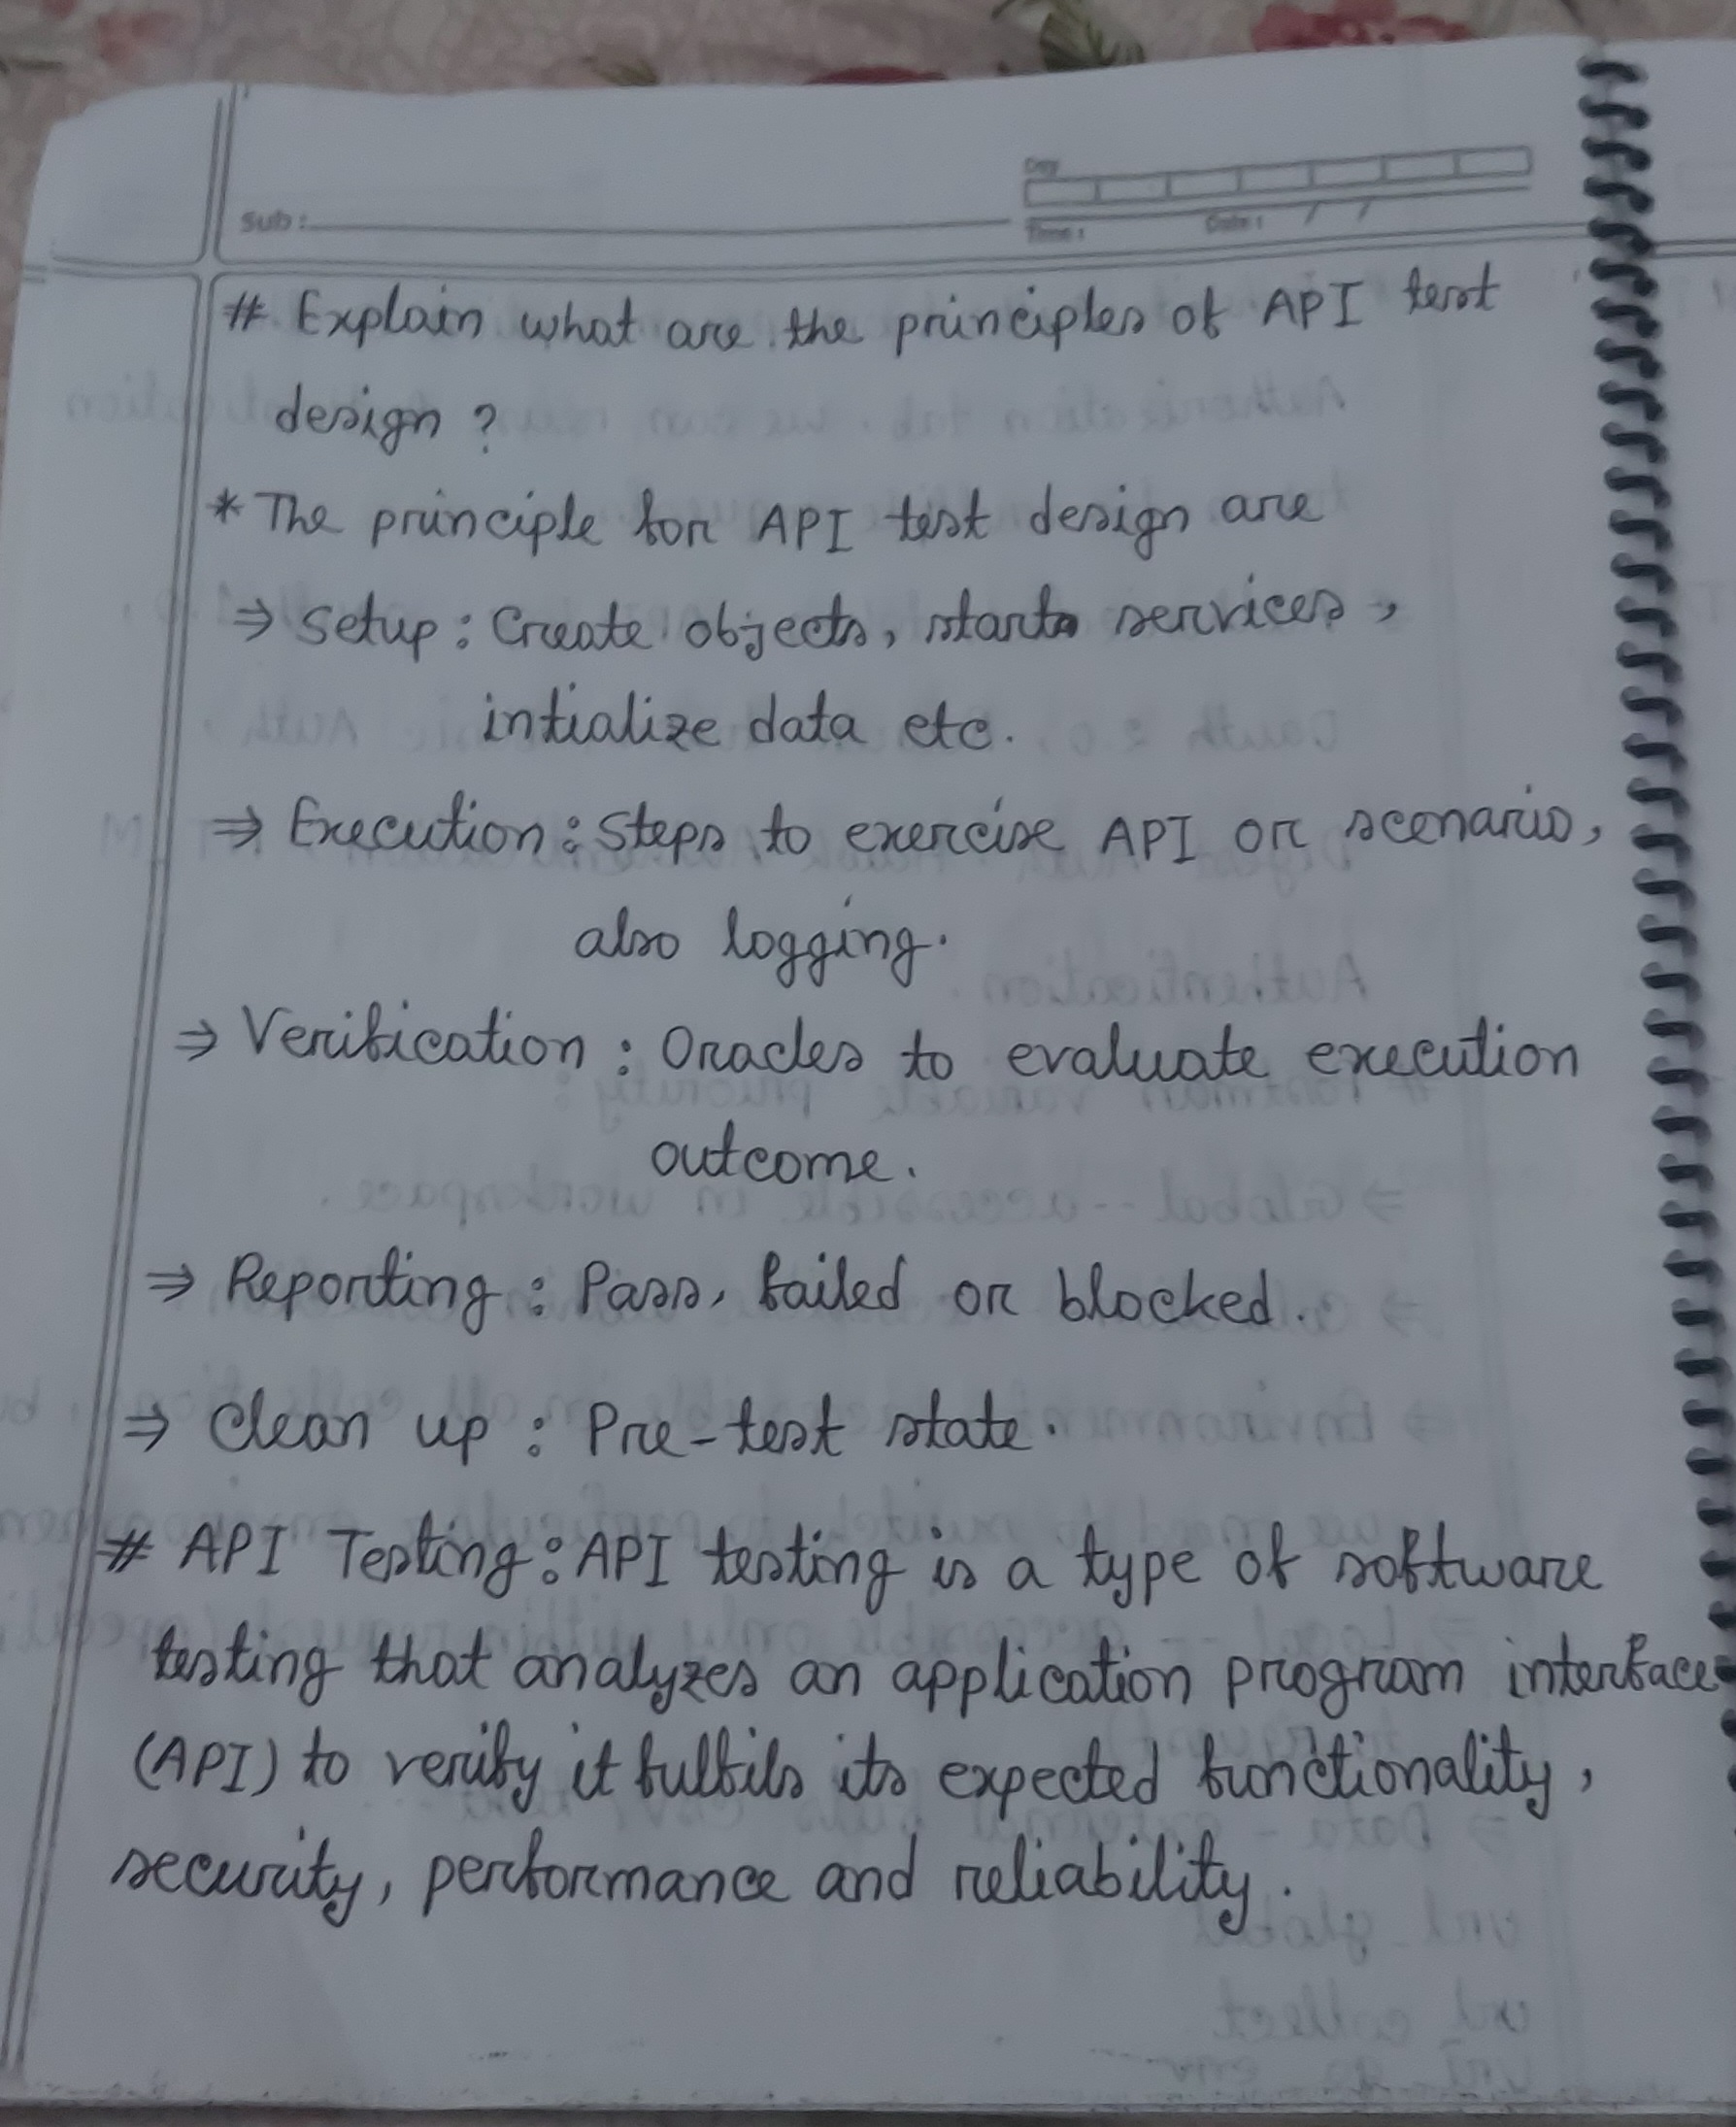 Day
Sub:
Time: Date: / /
# Explain what are the principles of API test
design ?
* The principle for API test design are
⇒ Setup : Create objects, starts services,
intialize data etc.
⇒ Execution : Steps to exercise API or scenario,
also logging.
⇒ Verification : Oracles to evaluate execution
outcome.
⇒ Reporting : Pass, failed or blocked.
⇒ Clean up : Pre-test state.
# API Testing : API testing is a type of software
testing that analyzes an application program interface
(API) to verify it fulfils its expected functionality,
security, performance and reliability.